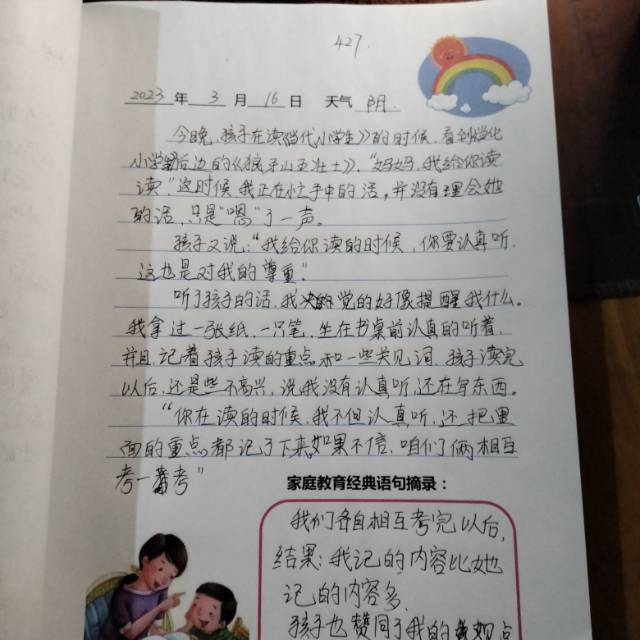 427.
2023 年 3 月 16 日 天气 阴.
今晚,孩子在读《当代小学生》的时候,看到当代
小学生后边的《狼牙山五壮士》,“妈妈,我给你读
读”这时候我正在忙手中的活,并没有理会她
的话,只是“嗯”了一声。
孩子又说:“我给你读的时候,你要认真听,
这也是对我的尊重”
听了孩子的话,我觉的好像提醒我什么。
我拿过一张纸,一只笔,坐在书桌前认真的听着,
并且记着孩子读的重点和一些关见词,孩子读完
以后,还是些不高兴,说我没有认真听还在写东西。
“你在读的时候,我不但认真听,还把里
面的重点都记了下来,如果不信,咱们俩相互
考一考”
家庭教育经典语句摘录:
我们各自相互考完以后,
结果:我记的内容比她
记的内容多.
孩子也赞同了我的观点